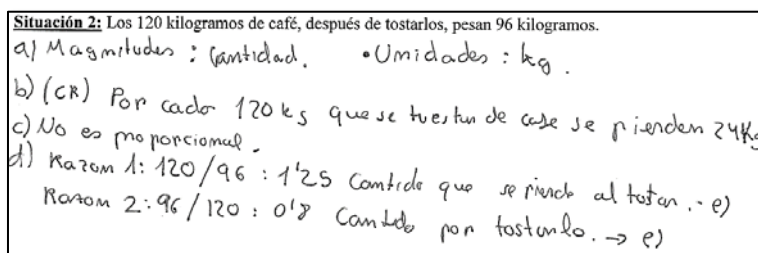 Situación 2: Los 120 kilogramos de café, después de tostarlos, pesan 96 kilogramos.
a) Magnitudes : Cantidad. • Unidades : kg.
b) (CR) Por cada 120 kgs que se tuestan de café se pierden 24 kg
c) No es proporcional.
d) Razon 1: 120/96 : 1'25 Cantida que se pierde al tostar. - e)
Razon 2: 96/120 : 0'8 Cantida por tostarlo. → e)